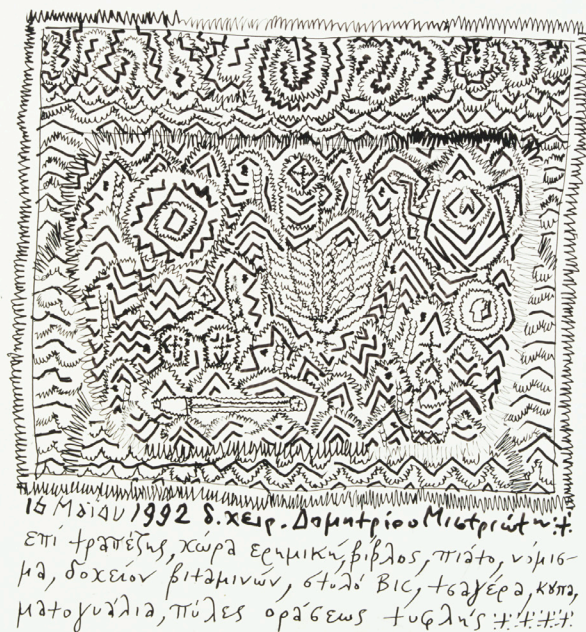 16 Μαΐου 1992 δ. χειρ. Δημητρίου Μιστριώτη :+
επί τραπέζης, χώρα ερημική, βίβλος, πιάτο, νόμισ-
μα, δοχείον βιταμινών, στυλό BIC, τσαγέρα, κύπα,
ματογυάλια, πύλες οράσεως τυφλής ++++